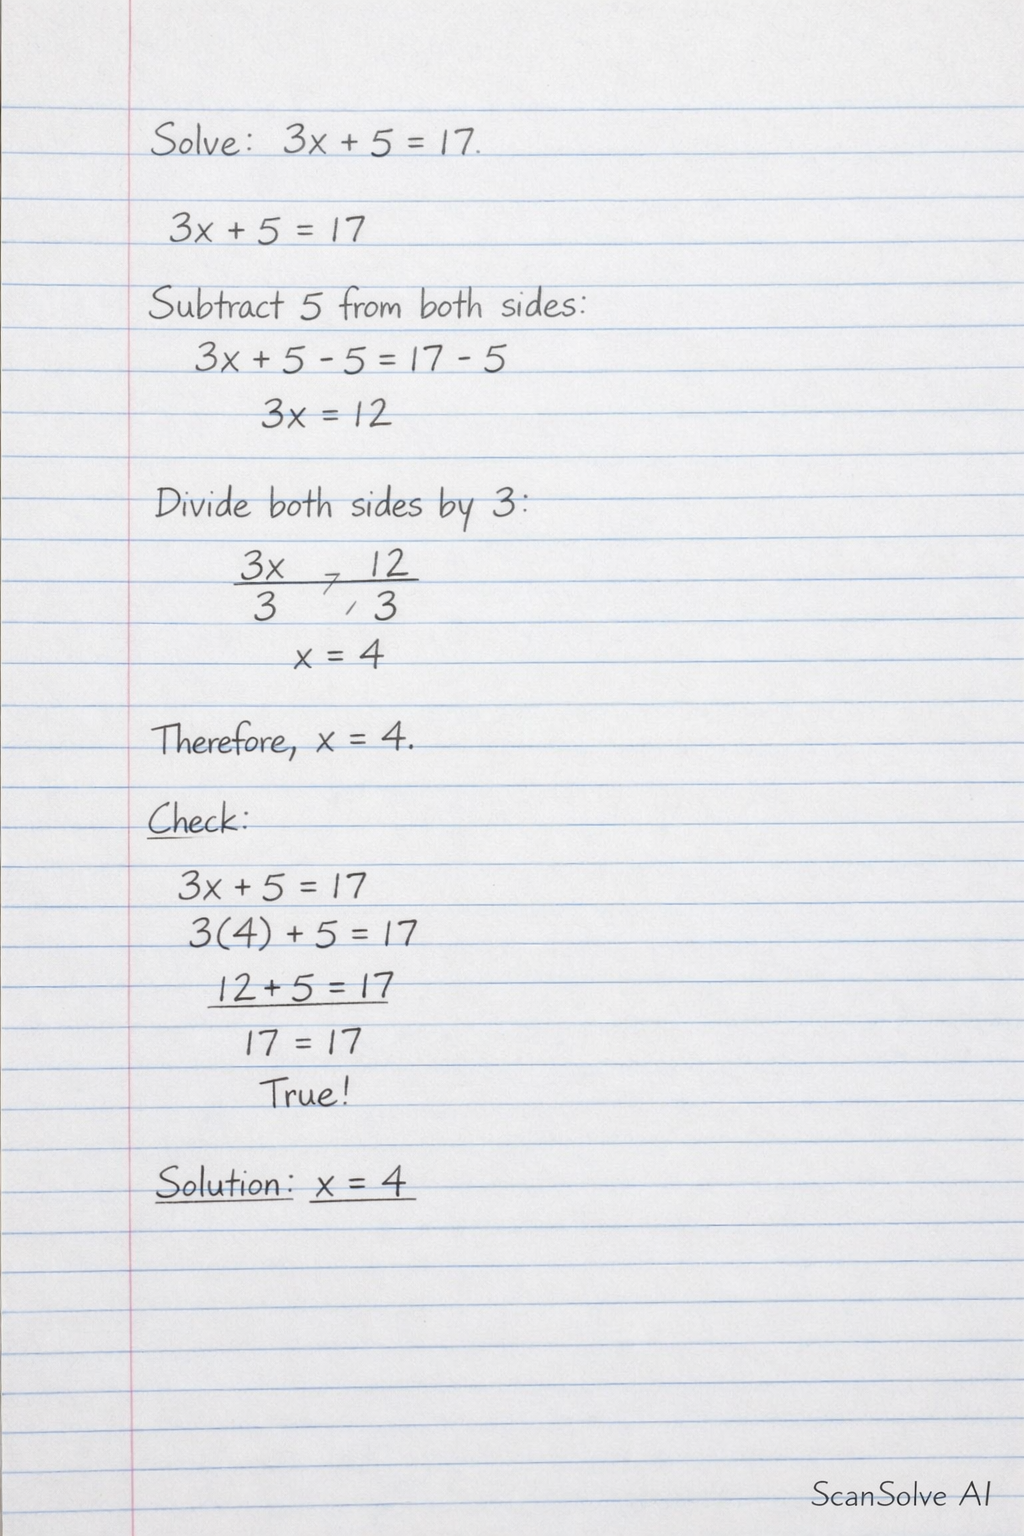 Solve: 3x + 5 = 17.
3x + 5 = 17
Subtract 5 from both sides:
3x + 5 - 5 = 17 - 5
3x = 12
Divide both sides by 3:
3x 12
3 3
x = 4
Therefore, x = 4.
Check:
3x + 5 = 17
3(4) + 5 = 17
12 + 5 = 17
17 = 17
True!
Solution: x = 4
ScanSolve AI